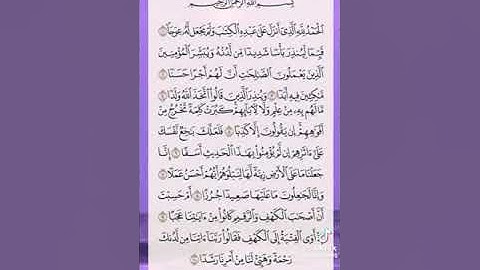 بِسْمِ اللَّهِ الرَّحْمَٰنِ الرَّحِيمِ
الْحَمْدُ لِلَّهِ الَّذِي أَنزَلَ عَلَىٰ عَبْدِهِ الْكِتَابَ وَلَمْ يَجْعَل لَّهُ عِوَجًا ۝١
قَيِّمًا لِّيُنذِرَ بَأْسًا شَدِيدًا مِّن لَّدُنْهُ وَيُبَشِّرَ الْمُؤْمِنِينَ
الَّذِينَ يَعْمَلُونَ الصَّالِحَاتِ أَنَّ لَهُمْ أَجْرًا حَسَنًا ۝٢
مَّاكِثِينَ فِيهِ أَبَدًا ۝٣ وَيُنذِرَ الَّذِينَ قَالُوا اتَّخَذَ اللَّهُ وَلَدًا ۝٤
مَّا لَهُم بِهِ مِنْ عِلْمٍ وَلَا لِآبَائِهِمْ كَبُرَتْ كَلِمَةً تَخْرُجُ مِنْ
أَفْوَاهِهِمْ إِن يَقُولُونَ إِلَّا كَذِبًا ۝٥ فَلَعَلَّكَ بَاخِعٌ نَّفْسَكَ
عَلَىٰ آثَارِهِمْ إِن لَّمْ يُؤْمِنُوا بِهَٰذَا الْحَدِيثِ أَسَفًا ۝٦ إِنَّا
جَعَلْنَا مَا عَلَى الْأَرْضِ زِينَةً لَّهَا لِنَبْلُوَهُمْ أَيُّهُمْ أَحْسَنُ عَمَلًا ۝٧
وَإِنَّا لَجَاعِلُونَ مَا عَلَيْهَا صَعِيدًا جُرُزًا ۝٨ أَمْ حَسِبْتَ
أَنَّ أَصْحَابَ الْكَهْفِ وَالرَّقِيمِ كَانُوا مِنْ آيَاتِنَا عَجَبًا ۝٩
إِذْ أَوَى الْفِتْيَةُ إِلَى الْكَهْفِ فَقَالُوا رَبَّنَا آتِنَا مِن لَّدُنكَ
رَحْمَةً وَهَيِّئْ لَنَا مِنْ أَمْرِنَا رَشَدًا ۝١٠